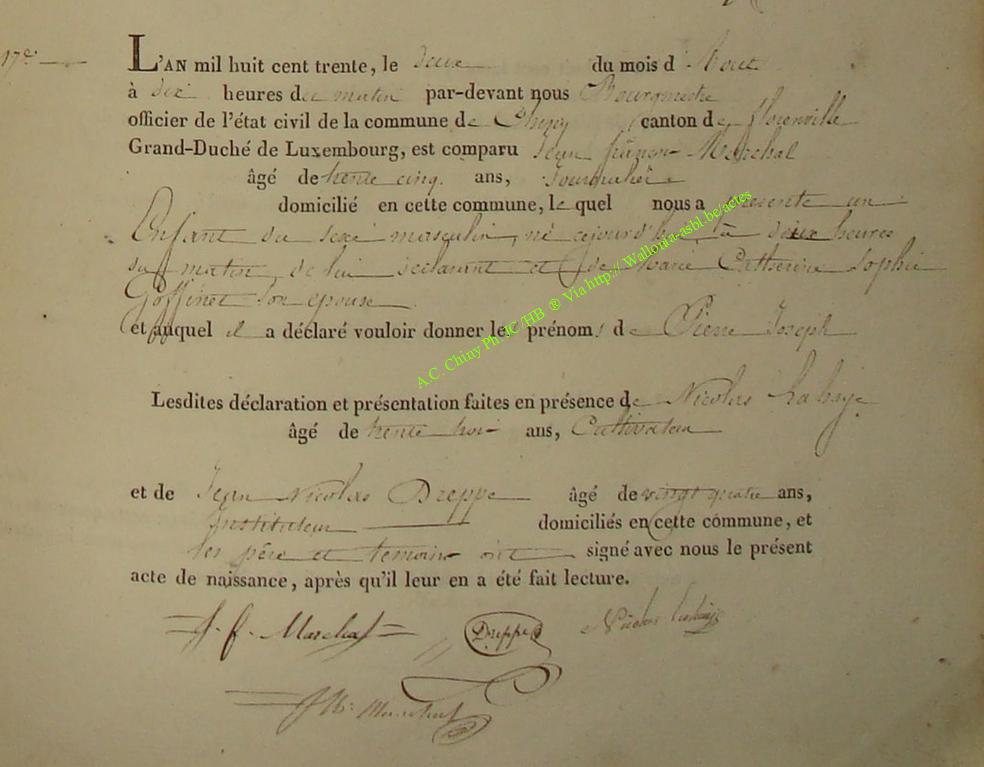 17e.
L'AN mil huit cent trente, le deux du mois d'Aout
à dix heures du matin par-devant nous Bourgmestre
officier de l'état civil de la commune de Chiny canton de florenville
Grand-Duché de Luxembourg, est comparu Jean françois Marchal
âgé de trente cinq ans,
domicilié en cette commune, le quel nous a présenté un
Enfant du sexe masculin, né cejourd'hui à deux heures
du matin, de lui déclarant et de Marie Catherine Sophie
Goffinet son epouse
et auquel il a déclaré vouloir donner les prénoms de Pierre Joseph
Lesdites déclaration et présentation faites en présence de Nicolas Lahaye
âgé de trente trois ans, Cultivateur
et de Jean Nicolas Dreppe âgé de vingt quatre ans,
Instituteur domiciliés en cette commune, et
les père et temoins ont signé avec nous le présent
acte de naissance, après qu'il leur en a été fait lecture.
J. f. Marchal Dreppe Nicolas Lahaye
Marchal
A.C. Chiny Ph JC/HB ® Via http:// Wallonia-asbl.be/actes